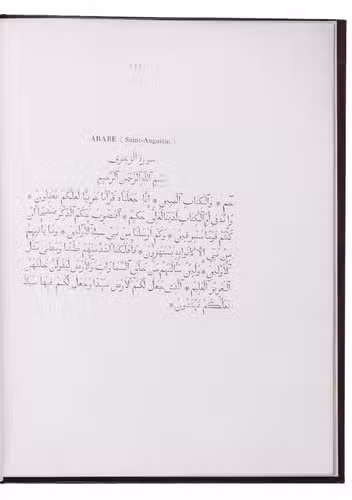 ARABE ( Saint-Augustin. )
سورة الزخرف
بسم الله الرحمن الرحيم
حم * والكتاب المبين * انا جعلناه قرآنا عربيا لعلكم تعقلون *
وانه في ام الكتاب لدينا لعلي حكيم * افنضرب عنكم الذكر صفحا ان
كنتم قوما مسرفين * وكم ارسلنا من نبي في الاولين * وما ياتيهم
من نبي الا كانوا به يستهزون * فاهلكنا اشد منهم بطشا ومضى مثل
الاولين * ولئن سالتهم من خلق السماوات والارض ليقولن خلقهن
العزيز العليم * الذي جعل لكم الارض مهدا وجعل لكم فيها سبلا
لعلكم تهتدون *